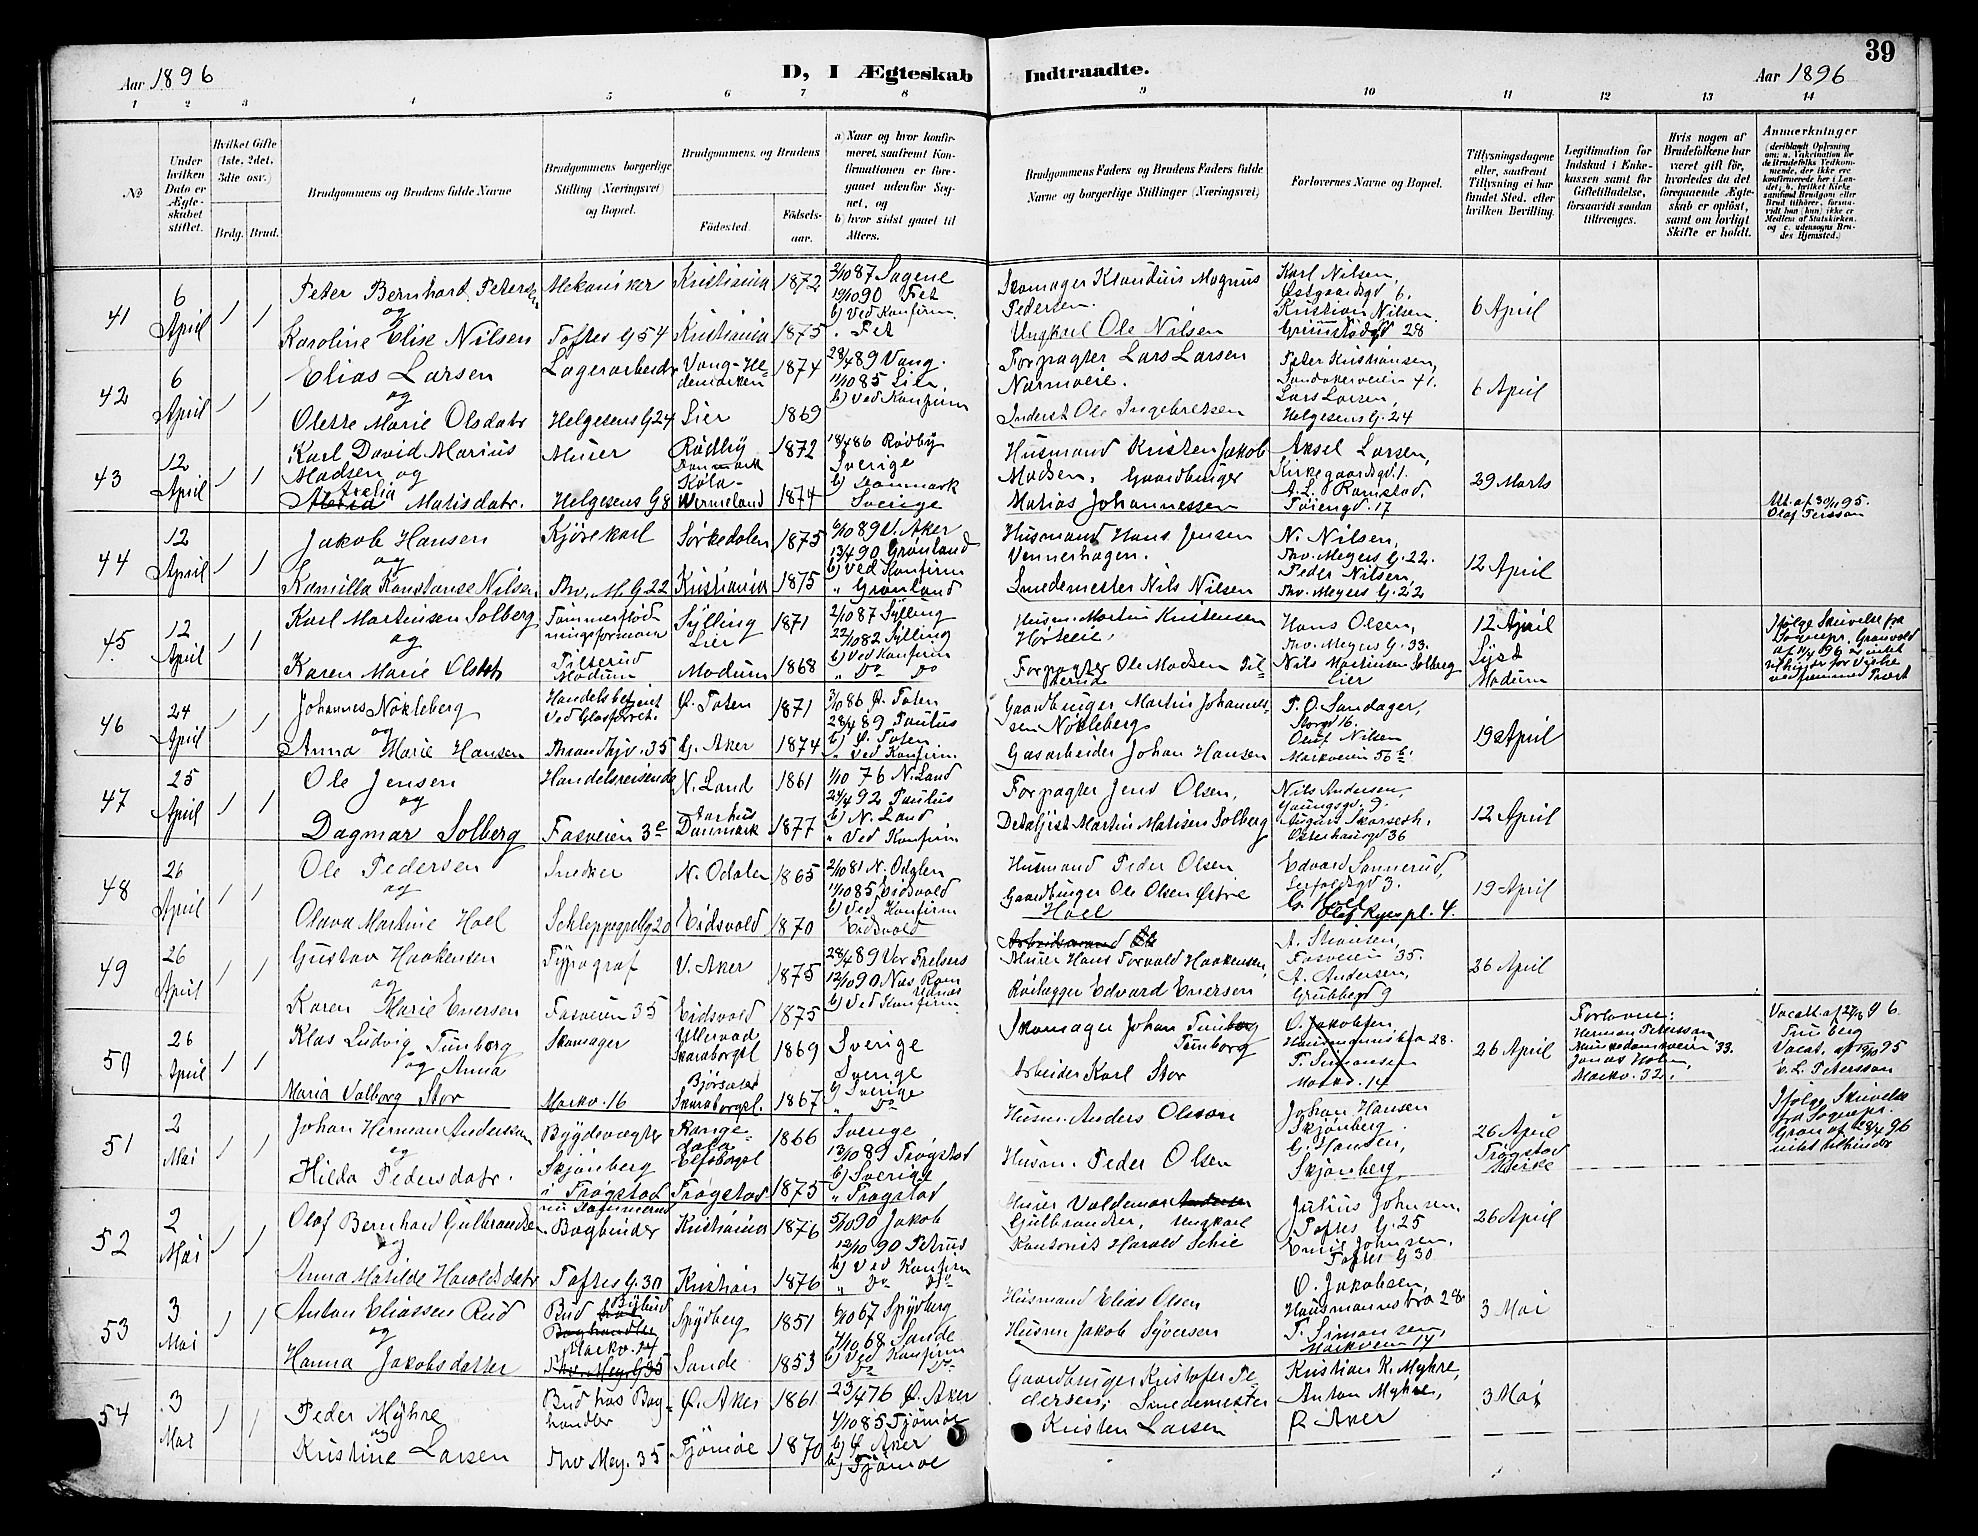 39
Aar 1896
D, I Ægteskab Indtraadte.
Aar 1896
1 2 3 4 5 6 7 8 9 10 11 12 13 14
No
Under hvilken Dato er Ægteskabet stiftet.
Hvilket Gifte (1ste, 2det, 3die osv.)
Brdg. Brud.
Brudgommens og Brudens fulde Navne
Brudgommens borgerlige Stilling (Næringsvei) og Bopæl.
Brudgommens og Brudens
Fødested.
Fødselsaar.
a) Naar og hvor konfirmeret, saafremt Konfirmationen er foregaaet udenfor Sognet, og
b) hvor sidst gaaet til Alters.
Brudgommens Faders og Brudens Faders fulde Navne og borgerlige Stillinger (Næringsvei)
Forlovernes Navne og Bopæl.
Tillysningsdagene eller, saafremt Tillysning ei har fundet Sted, efter hvilken Bevilling.
Legitimation for Indskud i Enkekassen samt for Giftetilladelse, forsaavidt saadan tiltrænges.
Hvis nogen af Brudefolkene har været gift før, hvorledes da det foregaaende Ægteskab er opløst, samt om lovligt Skifte er holdt.
Anmerkninger (deriblandt Oplysning om: a. Vakcination for de Brudefolks Vedkommende, der ikke ere konfirmerede her i Landet; b. hvilket Kirkesamfund Brudgom eller Brud tilhører, forsaavidt han (hun) ikke er Medlem af Statskirken, og c. udensogns Brudes Hjemsted.)
41 6 April 1 1 Peter Bernhard Petersen Mekaniker Kristiania 1872 2/10 87 Sagene Skomager Klaudius Magnus Pedersen. Karl Nilsen, Østgaardsgd 6. 6 April
og 12/10 90 Fet Kristian Nilsen
Karoline Elise Nilsen Toftes G 54 Kristiania 1875 b) Ved Konfirm. " Fet Ungkarl Ole Nilsen Grimstadgd 28
42 6 April 1 1 Elias Larsen Lagerarbeider Vang-Hedemarken 1874 28/4 89 Vang. Forpagter Lars Larsen Peter Kristiansen, Sandakerveien 41. 6 April
og 11/10 85 Lier. Lars Larsen,
Olette Marie Olsdatr Helgesens G 24 Lier 1869 b) Ved Konfirm Inderst Ole Ingebretsen Helgesens G. 24
43 12 April 1 1 Karl David Marius Madsen og Murer Rødby Danmark 1872 18/4 86 Rødby Husmand Kristen Jakob Madsen, Aksel Larsen, Kirkegaardsgd 1. 29 Marts
Matisdatr. Helgesens G 8 Køla-Wermeland 1874 Sverige b) Danmark Sverige Gaardbruger Matias Johannessen A. L. Ramstad, Tøiengd. 17 Att. af 30/11 95. Olaf Persson
44 12 April 1 1 Jakob Hansen Kjørekarl Sørkedalen 1875 6/10 89 V. Aker Husmand Hans Jensen N. Nilsen, Thv. Meyers G. 22. 12 April
og 13/4 90 Grønland Peder Nilsen,
Kamilla Konstanse Nilsen Thv. M. G 22 Kristiania 1875 b) Ved Konfirm " Grønland Smedemester Nils Nilsen Thv. Meyers G. 22
45 12 April 1 1 Karl Martinsen Solberg Tømmerflødningsformann Sylling Lier 1871 2/10 87 Sylling Husm. Martin Kristensen Hans Olsen, Thv. Meyers G. 33. 12 April Lyst Modum
og 22/10 82 Sylling
Karen Marie Olsdtr Modum Modum 1868 b) Ved Konfirm " Do Do Forpagter Ole Madsen Nils Martinsen Solberg Lier Ifølge Skrivelse fra Sognepr. Grønvold
46 24 April 1 1 Johannes Nøkleberg Handelsbetjent Ø. Toten 1871 3/10 86 Ø. Toten Gaardbruger Martin Johannessen Nøkleberg P. O. Sandager, Storgd 16. 19 April
og 28/4 89 Paulus Oluf Nilsen
Anna Marie Hansen 35 G. Aker 1874 b) Ø. Toten " Ved Konfirm. Gasarbeider Johan Hansen Markveien 56 b.
47 25 April 1 1 Ole Jensen Handelsreisende N. Land 1861 1/10 76 N. Land Forpagter Jens Olsen, Nils Andersen, Youngsgd. 9. 12 April
og 24/4 92 Paulus
Dagmar Solberg Fasveien 3 c Aarhus Danmark 1877 b) N. Land " Ved Konfirm Detaljist Martin Matisen Solberg Osterhausgd 36
48 26 April 1 1 Ole Pedersen Snedker N. Odalen 1865 2/10 81 N. Odalen Husmand Peder Olsen Edvard Sannerud, 3. 19 April
og 11/10 85 Eidsvold
Olava Martine Hoel Schleppegrellsg 20 Eidsvold 1870 b) Ved Konfirm Eidsvold Gaardbruger Ole Olsen Østre Hoel G. Hoel Olaf Ryes pl. 4.
49 26 April 1 1 Gustav Haakensen Typograf V. Aker 1875 28/4 89 Vor Frelsers Arbeidsmand Ole Murer Hans Torvald Haakensen, Fasveien 35. 26 April
og 12/10 90 Næs Romerikes A. Andersen,
Karen Marie Enersen Fasveien 35 Eidsvold 1875 b) Ved Konfirm Edvard Enersen Grubbegd 9
50 26 April 1 1 Klas Ludvig Tunborg Skomager Skaraborgsl 1869 Sverige Skomager Johan Tunborg O. Jakobsen, Hausmannsbro 28. 26 April Forlovere: Herman Petersson Munkedamsveien 33. Vacatt. af 27/2 96.
og Anna Sverige T. Simonsen Jonas Holm, Tunberg
Maria Valborg Stor Markv. 16 Skaraborgsl. 1867 b) Sverige " Do Arbeider Karl Stor Markv. 14 Markv. 32. Vacat. af 12/10 95 E. L. Petersson
51 2 Mai 1 1 Johan Herman Andersson Bygdevægter Elfsborgsl 1866 Sverige Husm. Anders Olsson Johan Hansen Skjønberg. 26 April Trøgstad Kirke
og Skjønberg 13/10 89 Trøgstad G. Hansen,
Hilda Pedersdatr. i Trøgstad Trøgstad 1875 b) Sverige " Trøgstad Husm. Peder Olsen Skjønberg, Ifølge Skrivelse fra Sognepr. Gran af 28/4 96 intet tilhinder
52 2 Mai 1 1 Olaf Bernhard Gulbrandsen Bogbinder Kristiania 1876 5/10 90 Jakob Murer Valdemar Andersen Gulbrandsen, Ungkarl Julius Johnsen, Toftes G. 25 26 April
og 12/10 90 Petrus Emil Johnsen,
Anna Matilde Haraldsdatr Toftes G. 30 Kristiania 1876 b) Ved Konfirm " Do Do Kontorist Harald Schie Toftes G 30
53 3 Mai 1 1 Anton Eliassen Rud Bud Bybud Spydberg 1851 6/10 67 Spydberg Husmand Elias Olsen O. Jakobsen, Hausmannsbro 28. 3 Mai
og Markv. 14 4/10 68 Sande T. Simonsen,
Hanna Jakobsdatter Thv. Mey. G 35 Sande 1853 b) Ved Konfirm Do Do Husm Jakob Syversen Markveien 14
54 3 Mai 1 1 Peder Myhre Bud hos Boghandler Ø. Aker 1861 23/4 76 Ø. Aker Gaardbruger Kristofer Pedersen, Kristian K. Myhre, 3 Mai
og 4/10 85 Tjømøe Anton Myhre,
Kristine Larsen Thv Mey. 35 Tjømøe 1870 b) Ø. Aker b) Tjømøe Smedemester Kristen Larsen Ø Aker